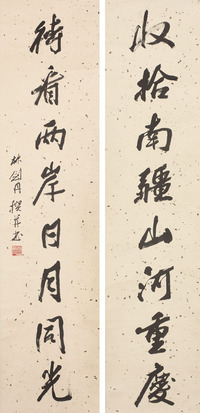 收拾南疆山河重慶
待看兩岸日月同光
林劍丹撰并書